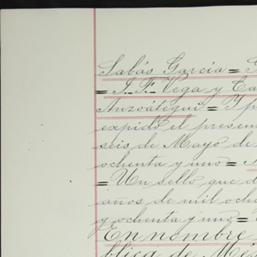 Sabás Garcia =
= I. F. Vega y
Anzoátegui = Y
expidó el presen
seis de Mayo de
ochenta y uno =
= Un sello que d
años de mil oche
y ochenta y uno =
En nombre
blica de Mé